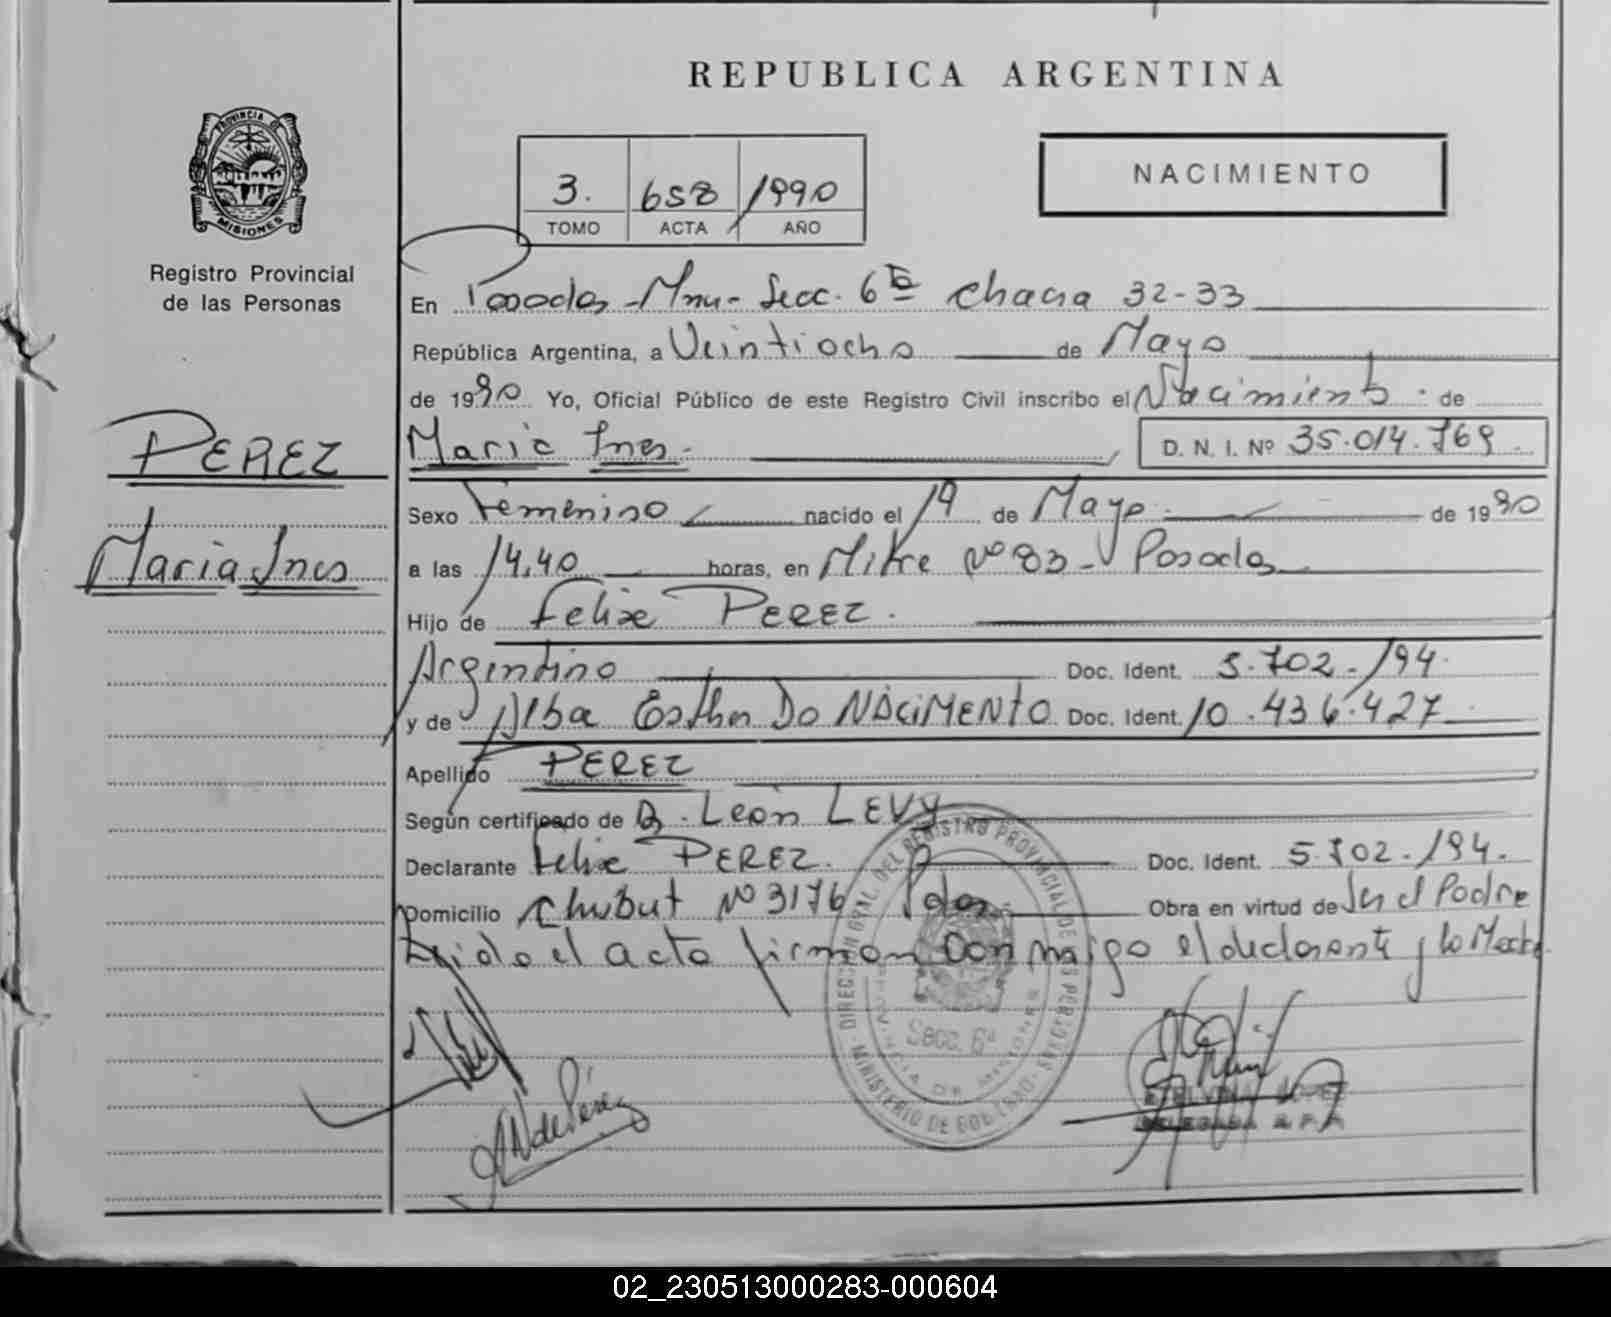 REPUBLICA ARGENTINA
PROVINCIA DE
MISIONES
Registro Provincial
de las Personas
3. 658 1990
TOMO ACTA AÑO
NACIMIENTO
En Posadas - Mnes - Secc. 6ta chacra 32-33
República Argentina, a Veintiocho de Mayo
de 1990 Yo, Oficial Público de este Registro Civil inscribo el Nacimiento de
PEREZ
Maria Ines
Maria Ines.
D. N. I. Nº 35.014.769
Sexo Femenino nacido el 19 de Mayo de 1990
a las 14,40 horas, en Mitre Nº 83 - Posadas
Hijo de Felix PEREZ.
Argentino Doc. Ident. 5.702.194.
y de Alba Esther DO NACIMENTO Doc. Ident. 10.436.427
Apellido PEREZ
Según certificado de Dr. León LEVY
Declarante Felix PEREZ. Doc. Ident. 5.702.194.
Domicilio Chubut Nº 3176 Pdas Obra en virtud de Ser el Padre
Leido el acta firman conmigo el declarante y la Madre
DIRECCION GRAL. DEL REGISTRO PROVINCIAL DE LAS PERSONAS
MINISTERIO DE GOBIERNO
PROVINCIA DE MISIONES
SECC. 6ª
de Pérez
DELEGADA R.P.P.
02_230513000283-000604